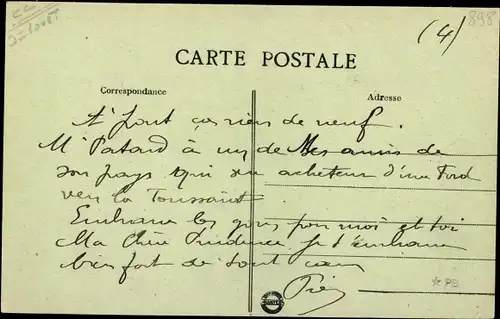 898
(4)
CARTE POSTALE
Correspondance
Adresse
A part ça rien de neuf.
Mr Patard a vu de Mes amis de
son pays qui acheteur d'une Ford
vers la Toussaint
Embrasse les pour moi et toi
Ma Chère Prudence je t'embrasse
bien fort de tout cœur
PB